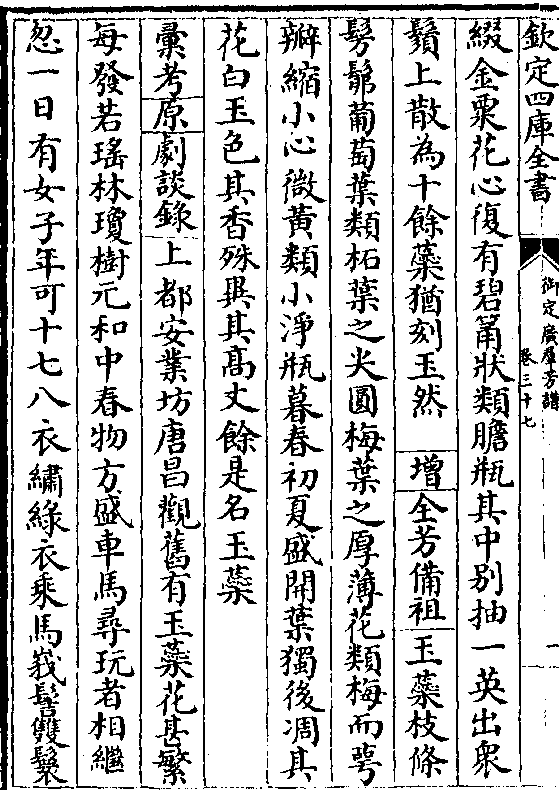 欽定四庫全書
御定廣羣芳譜
卷三十七
一
綴金粟花心復有碧筩狀類膽瓶其中别抽一英出衆
鬚上散為十餘蘂猶刻玉然 增全芳備祖玉蘂枝條
髣髴葡萄葉類柘葉之尖圓梅葉之厚薄花類梅而萼
瓣縮小心微黄類小淨瓶暮春初夏盛開葉獨後凋其
花白玉色其香殊異其髙丈餘是名玉蘂
彙考原劇談錄上都安業坊唐昌觀舊有玉蘂花甚繁
每發若瑤林瓊樹元和中春物方盛車馬尋玩者相繼
忽一日有女子年可十七八衣繡綠衣乘馬峩髻雙鬟